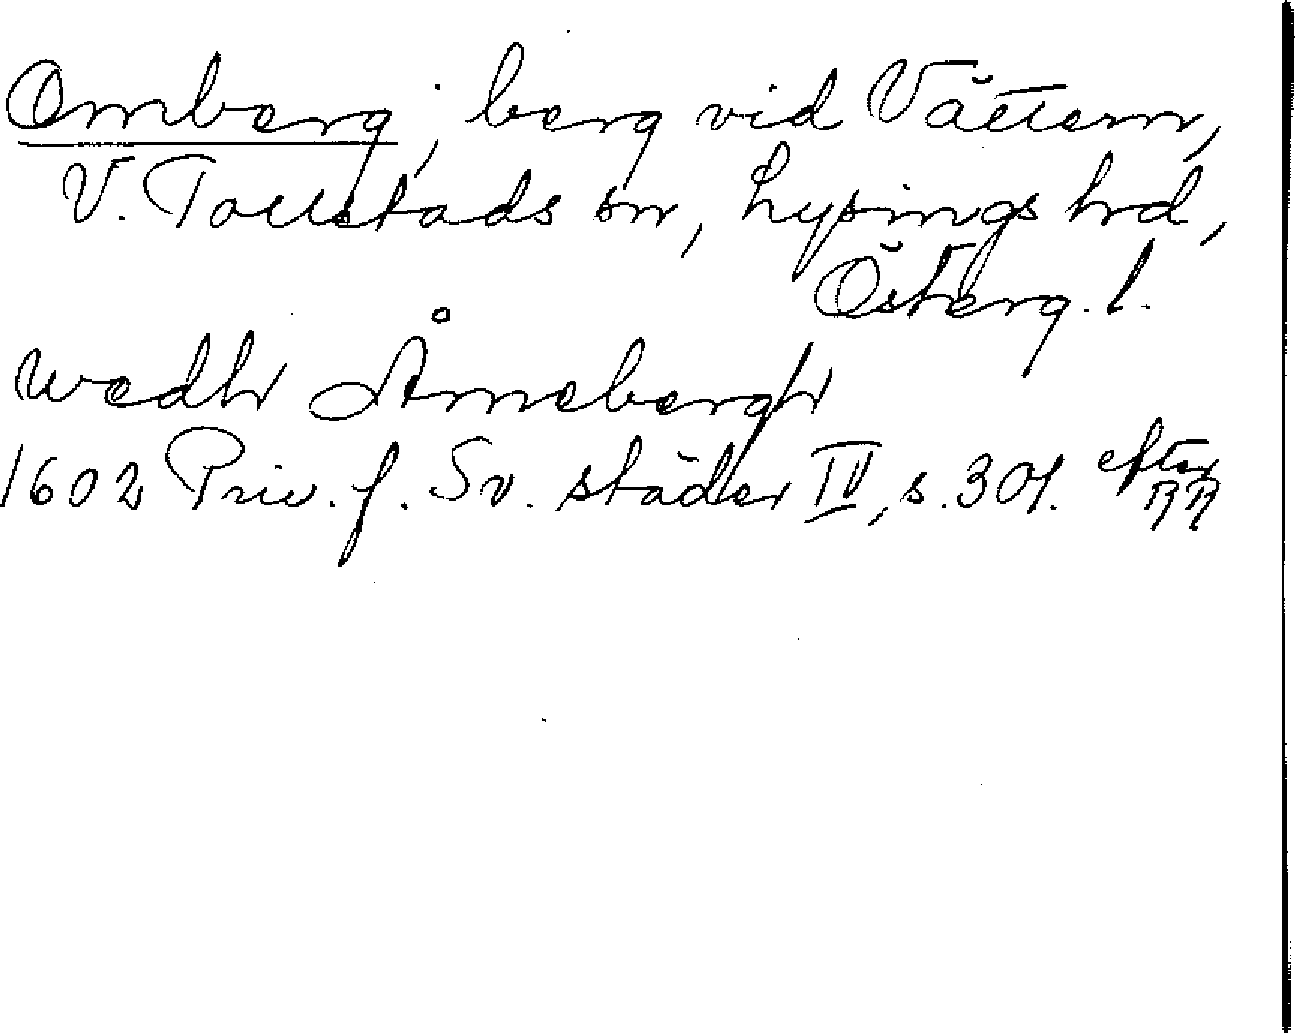 Omberg, berg vid Vättern,
V. Tollstads sn, Lysings hrd,
Österg. l.
wedh Åmebergh
1602 Priv. f. Sv. städer IV, s. 301. efter
RR